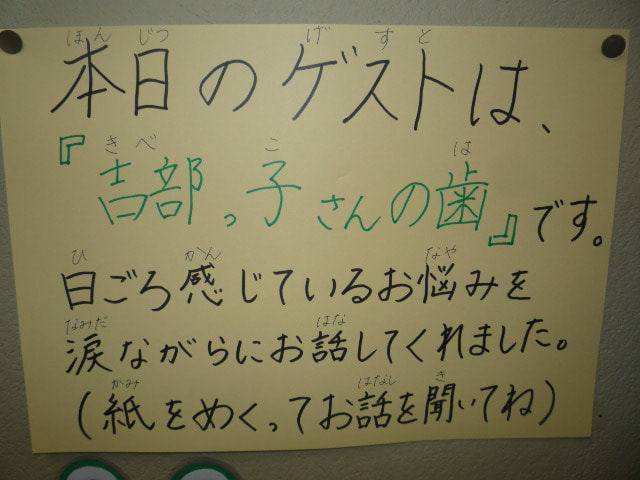 ほん じつ げ す と
本日のゲストは、
き べ こ は
『吉部っ子さんの歯』です。
ひ かん なや
日ごろ感じているお悩みを
なみだ はな
涙ながらにお話してくれました。
かみ はなし き
(紙をめくってお話を聞いてね)